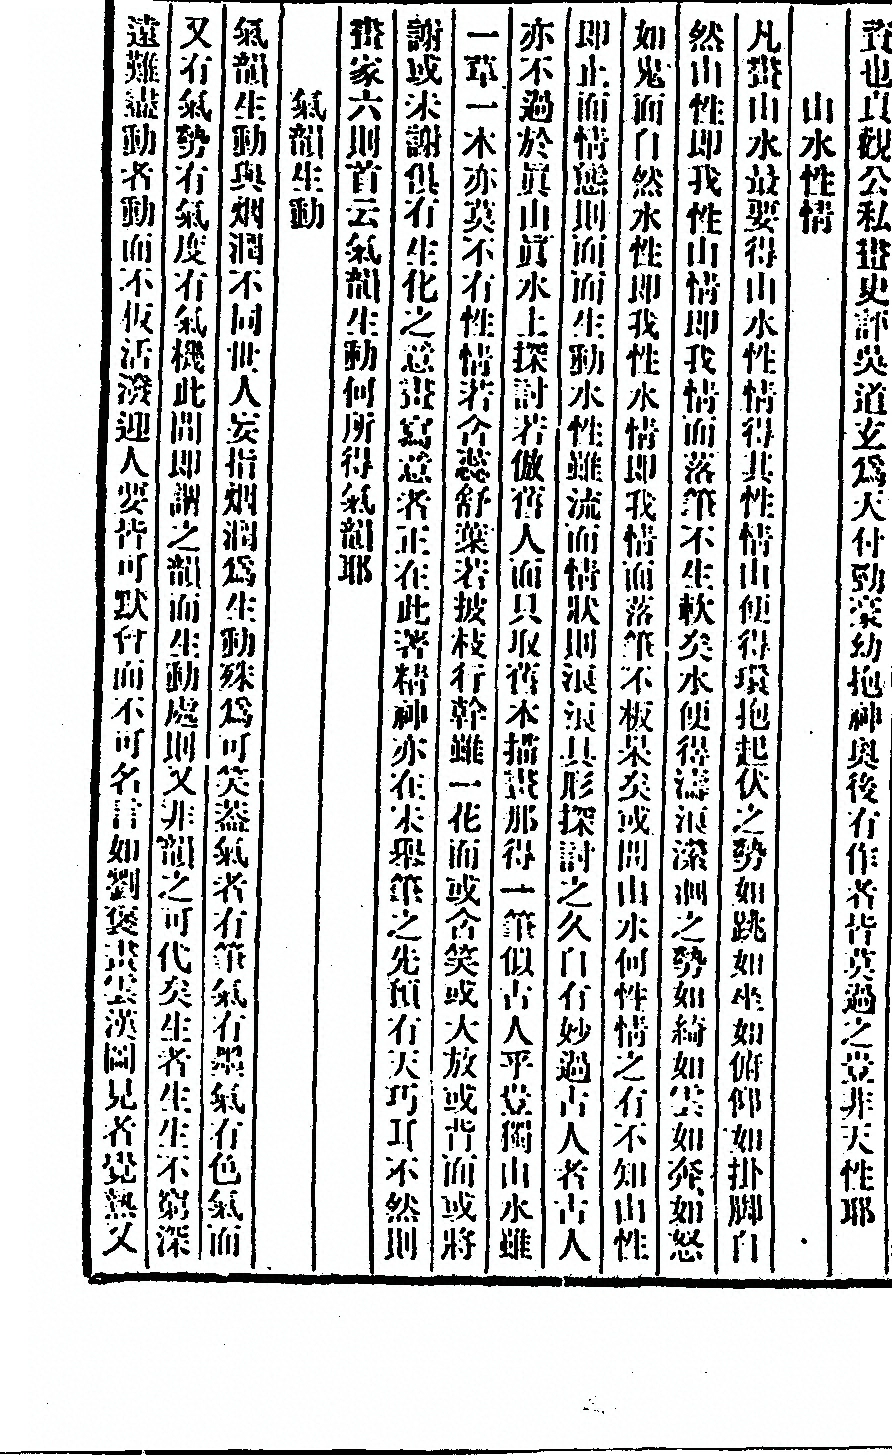 聳也貞觀公私畫史評吳道玄爲天付勁毫幼抱神奧後有作者皆莫過之豈非天性耶
山水性情
凡畫山水最要得山水性情得其性情山便得環抱起伏之勢如跳如坐如俯仰如掛脚自
然山性即我性山情即我情而落筆不生軟矣水便得濤浪瀠洄之勢如綺如雲如奔如怒
如鬼面自然水性即我性水情即我情而落筆不板呆矣或問山水何性情之有不知山性
即止而情態則面面生動水性雖流而情狀則浪浪具形探討之久自有妙過古人者古人
亦不過於眞山眞水上探討若倣舊人而只取舊本描畫那得一筆似古人乎豈獨山水雖
一草一木亦莫不有性情若含蕊舒葉若披枝行幹雖一花而或含笑或大放或背面或將
謝或未謝俱有生化之意畫寫意者正在此著精神亦在未舉筆之先預有天巧耳不然則
畫家六則首云氣韻生動何所得氣韻耶
氣韻生動
氣韻生動與烟潤不同世人妄指烟潤爲生動殊爲可笑蓋氣者有筆氣有墨氣有色氣而
又有氣勢有氣度有氣機此間即謂之韻而生動處則又非韻之可代矣生者生生不窮深
遠難盡動者動而不板活潑迎人要皆可默會而不可名言如劉褒畫雲漢圖見者覺熱又